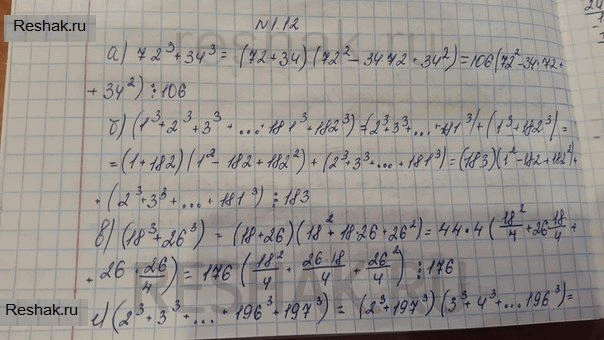 Reshak.ru
Reshak.ru
N1.12
а) 72³+34³ = (72+34)(72² − 34·72 + 34²) = 106(72² − 34·72 +
+ 34²) ⋮ 106
б) (1³+2³+3³+...+181³+182³) = (2³+3³+...+181³)+(1³+182³) =
= (1+182)(1² − 182 + 182²) + (2³+3³+...+181³) = (183)(1² − 182 + 182²) +
+ (2³+3³+...+181³) ⋮ 183
в) (18³+26³) = (18+26)(18² + 18·26 + 26²) = 44·4(18²/4 + 26·18/4 +
+ 26·26/4) = 176(18²/4 + 26·18/4 + 26²/4) ⋮ 176
г) (2³+3³+...+196³+197³) = (2³+197³)(3³+4³+...196³) =
Reshak.ru
Reshak.ru
RESHAK.RU